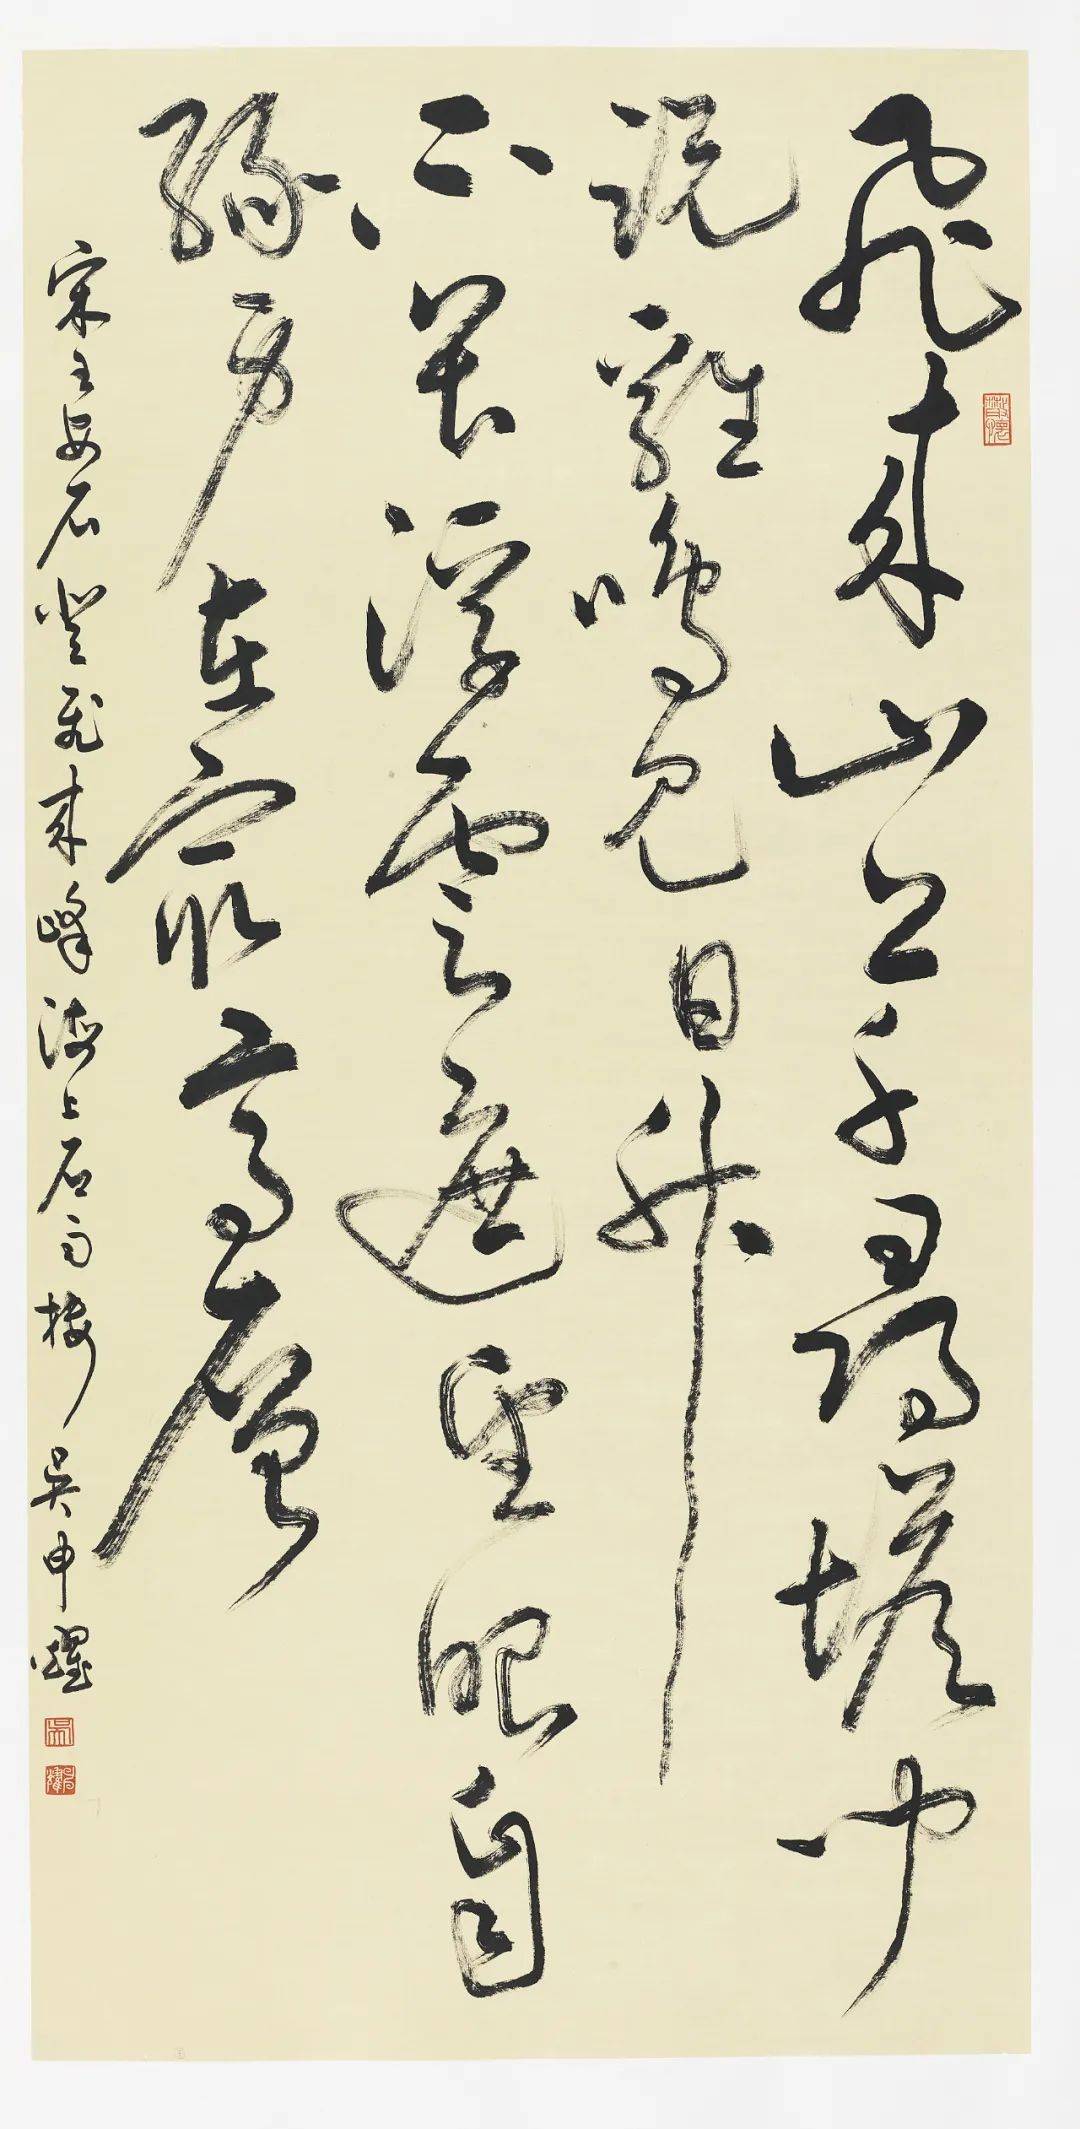 飛来山上千尋塔聞
説雞鳴見日升
不畏浮雲遮望眼自
緣身在最高層
宋王安石登飛来峰海上石楼吴申耀